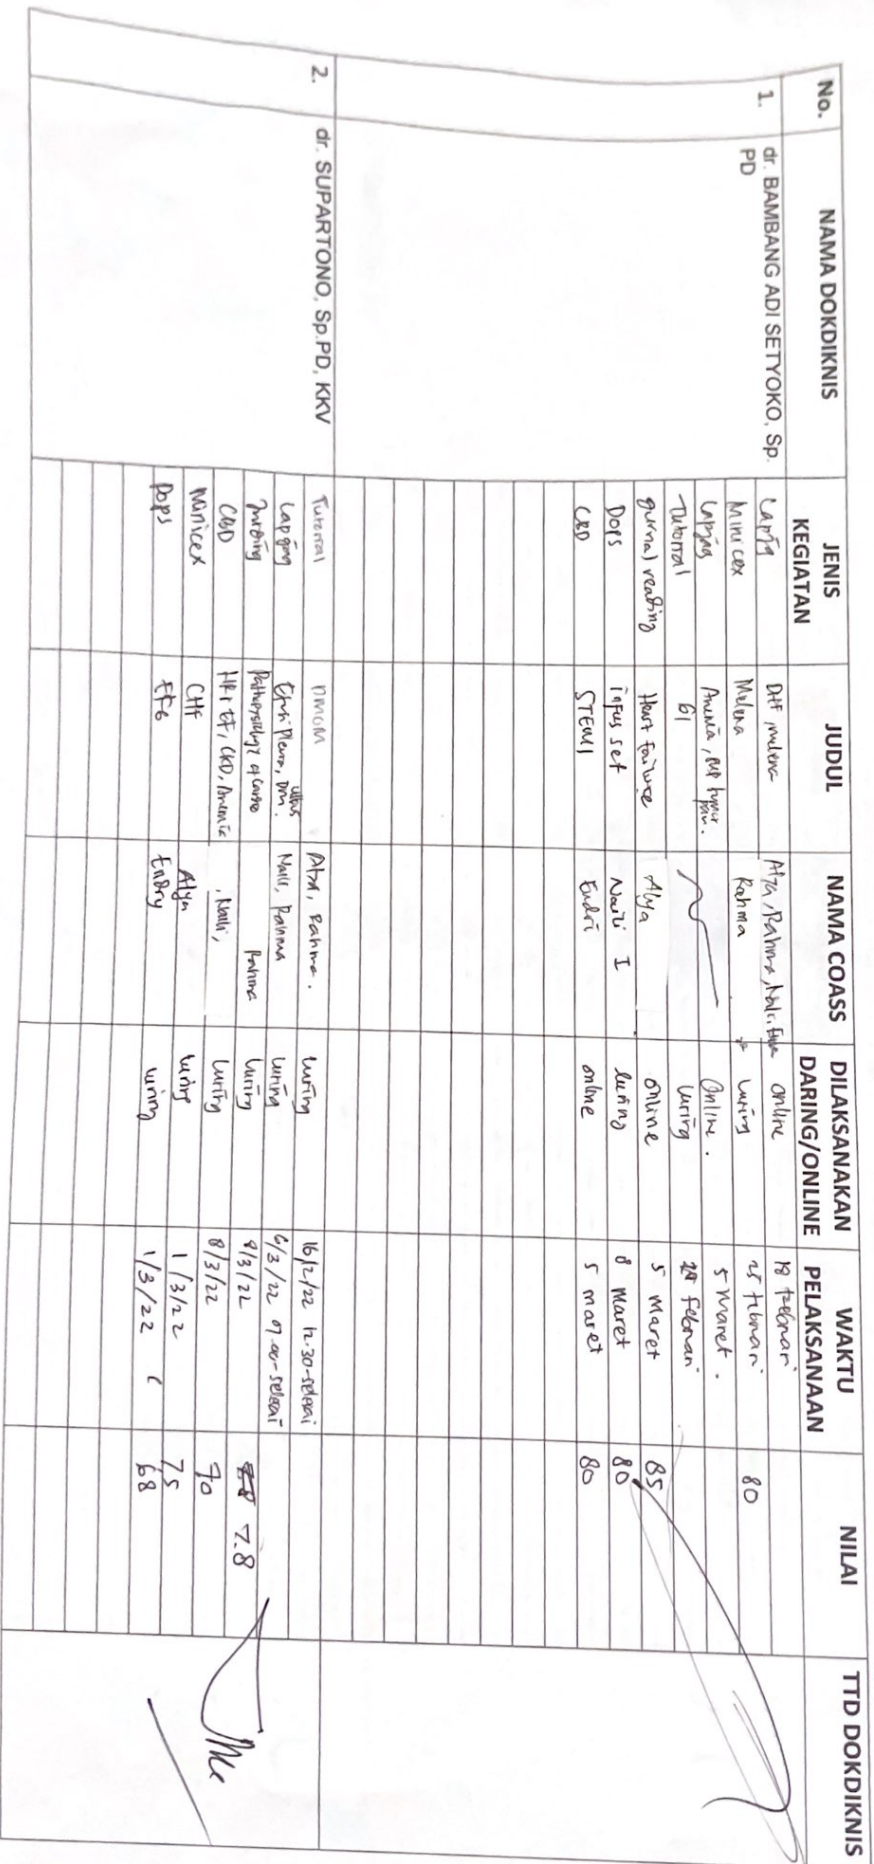 No. NAMA DOKDIKNIS JENIS KEGIATAN JUDUL NAMA COASS DILAKSANAKAN DARING/ONLINE WAKTU PELAKSANAAN NILAI TTD DOKDIKNIS
1. dr. BAMBANG ADI SETYOKO, Sp. PD
DHF, melena Rahma, online 18 Februari
Minicex Melena Rahma luring 25 Februari 80
Lapjag Anemia, Online. 5 Maret.
Tutorial luring Februari
gurnal reading Heart Failure Alya online 5 Maret 85
Dops infus set Naili I luring 8 Maret 80
CBD STEMI Endri online 5 maret 80
2. dr. SUPARTONO, Sp.PD, KKV
Tutorial Rahma. luring 16/2/22 12.30-selesai
Lap jag Efusi Pleura, DM, ulkus Naili, Rahma luring 6/3/22 07.00-selesai
Rahma luring 8/3/22 78
CBD CKD, Anemia , Naili, luring 8/3/22 70
Minicex CHF Alya luring 1/3/22 75
Dops Endry luring 1/3/22 68